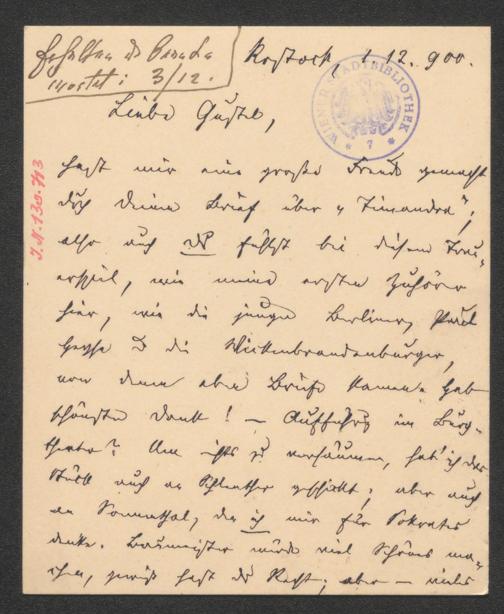 Rostock, 1.12.900.
WIENER STADTBIBLIOTHEK
7
J.N. 130.793
3/12.
Liebe Gustl,
hast mir eine große Freude gemacht
durch Deinen Brief über „Timandra";
also auch du fühlst bei diesem Trau-
erspiel, wie meine ersten Zuhörer
hier, wie die jungen Berliner, Paul
Heyse u die Wittenbrandenburger,
von denen aber Briefe kamen. Hab
schönsten Dank! — Aufführung im Burg-
theater? Um nichts zu versäumen, hab' ich das
Stück auch an Schlenther geschickt; aber auch
an Sonnenthal, den ich mir für Sokrates
denke. Baumeister würde viel Schönes ma-
chen, gewiß hast du Recht; aber — vieles